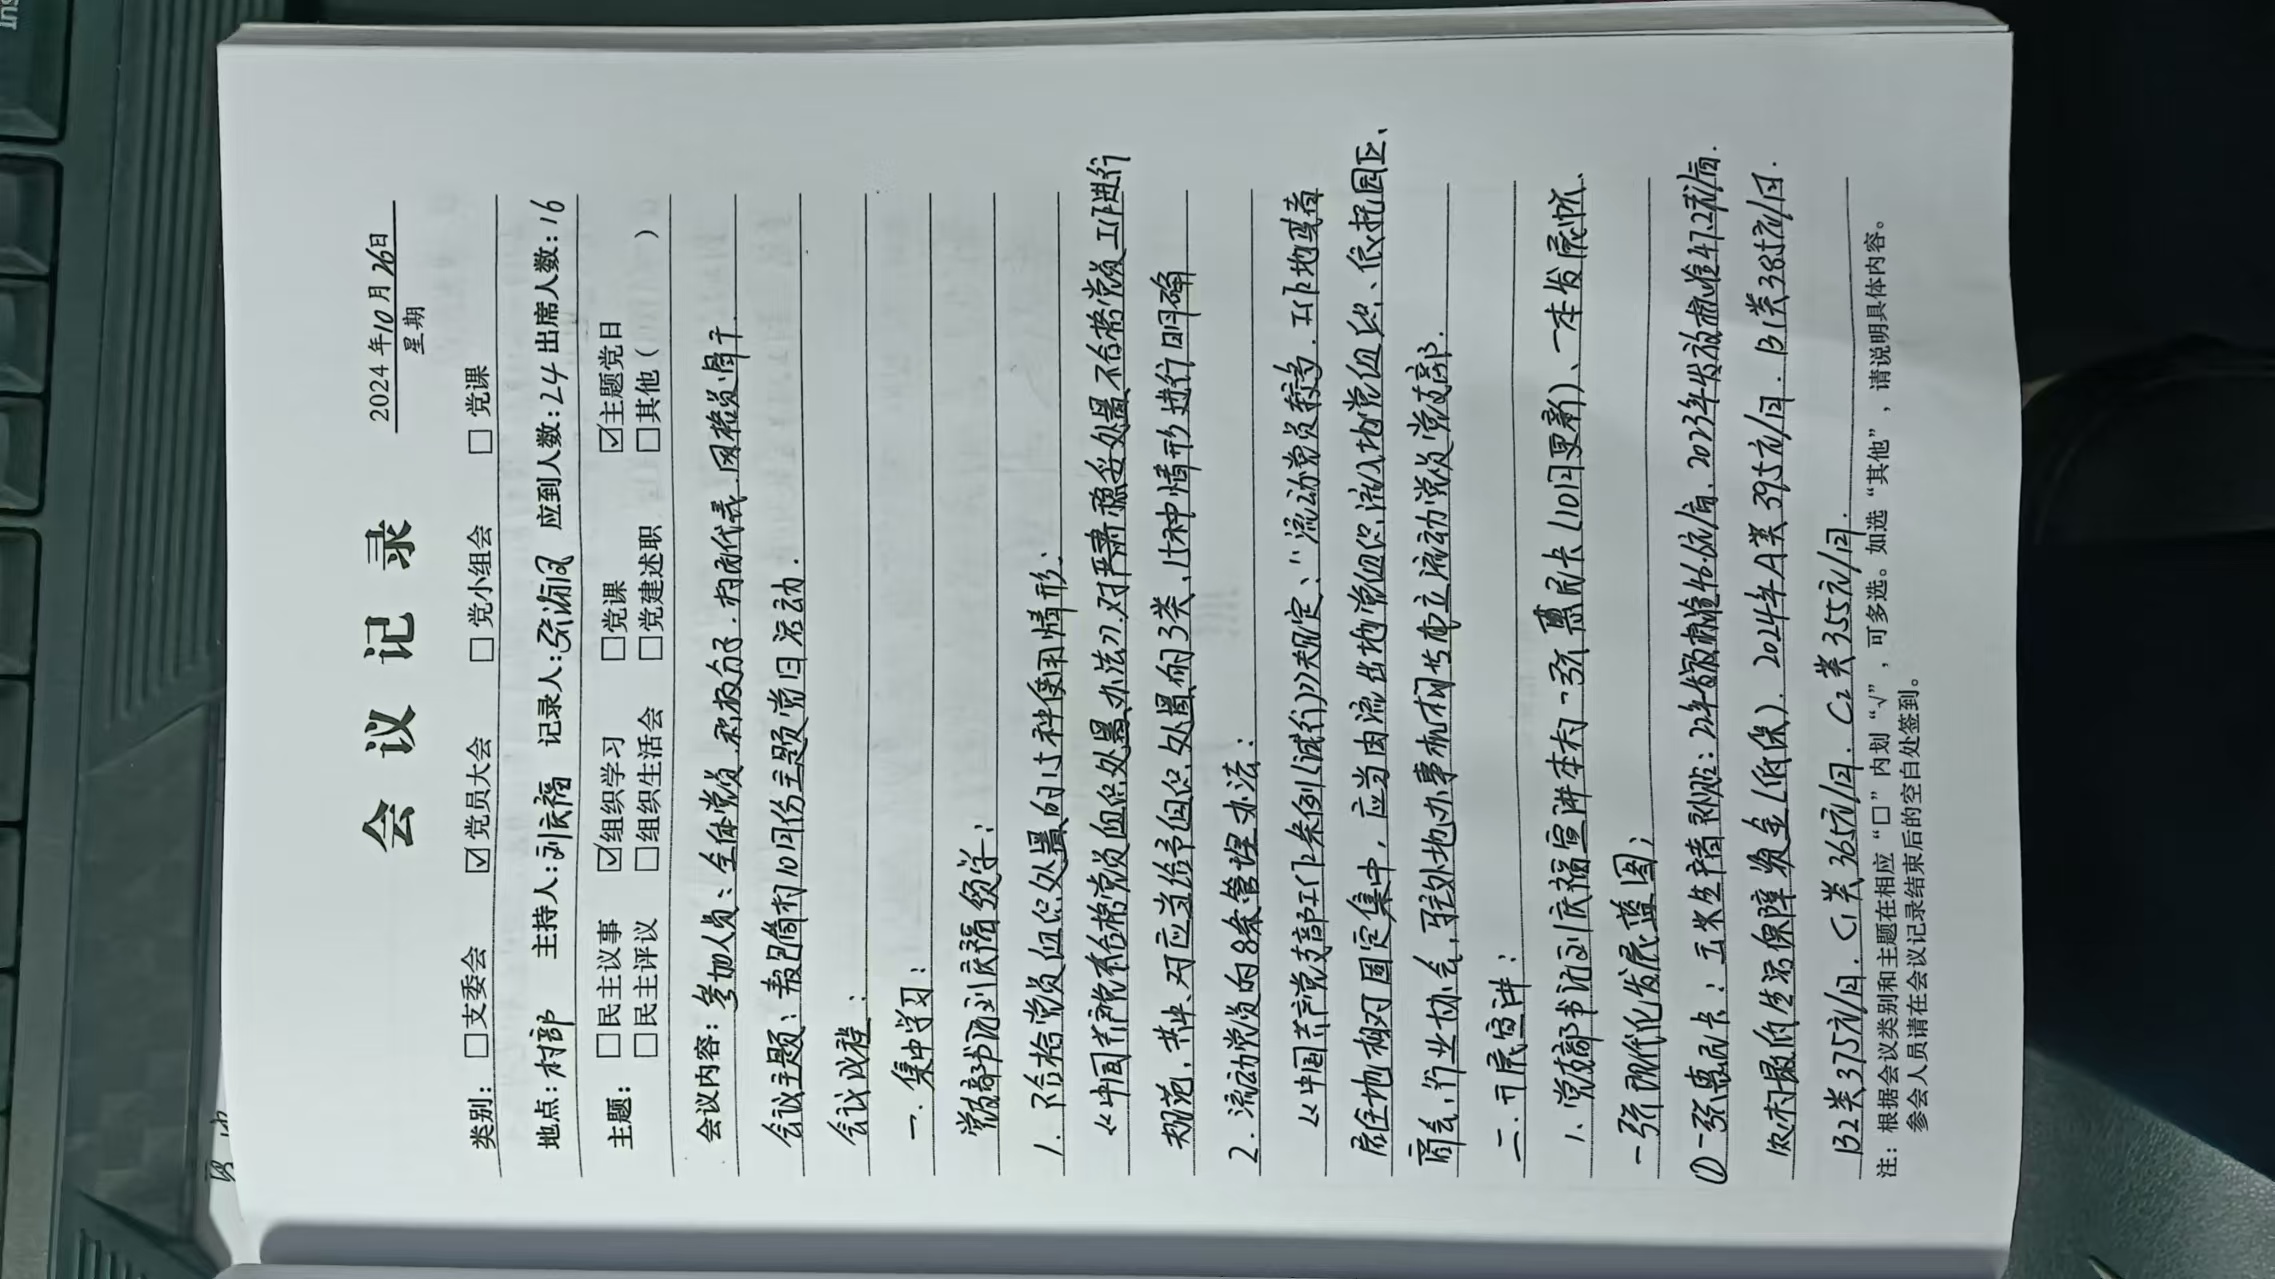 会议记录
2024年10月26日
星期
类别：□支委会 ☑党员大会 □党小组会 □党课
地点：村部 主持人：刘庆福 记录人：张淑凤 应到人数：24 出席人数：16
主题：□民主议事 ☑组织学习 □党课 ☑主题党日
□民主评议 □组织生活会 □党建述职 □其他（ ）
会议内容：参加人员：全体党员、积极分子、村民代表、网格员骨干.
会议主题：村10月份主题党日活动.
会议议程：
一.集中学习：
党支部书记刘庆福领学：
1.不合格党员组织处置的15种使用情形.
《中国共产党不合格党员组织处置办法》.对严肃稳妥处置不合格党员工作进行
规范，共性、对应当给予组织处置的3类、15种情形进行明确
2.流动党员的8条管理办法：
《中国共产党支部工作条例(试行)》规定、"流动党员较多，工作地或者
居住地相对固定集中，应当由流出地党组织商流入地党组织、依托园区、
商会、行业协会、驻外地办事机构等设立流动党员党支部.
二.开展宣讲：
1.党支部书记刘庆福宣讲本村一张惠民卡(10月更新)、一本发展帐、
一张现代化发展蓝图；
①一张惠民卡：玉米生产者补贴：2022年发放标准46.6元/亩、2023年发放标准47.27元/亩.
农村最低生活保障资金(低保).2024年A类395元/月. B1类385元/月.
B2类375元/月. C1类365元/月. C2类355元/月.
注：根据会议类别和主题在相应“□”内划“√”，可多选。如选“其他”，请说明具体内容。
参会人员请在会议记录结束后的空白处签到。